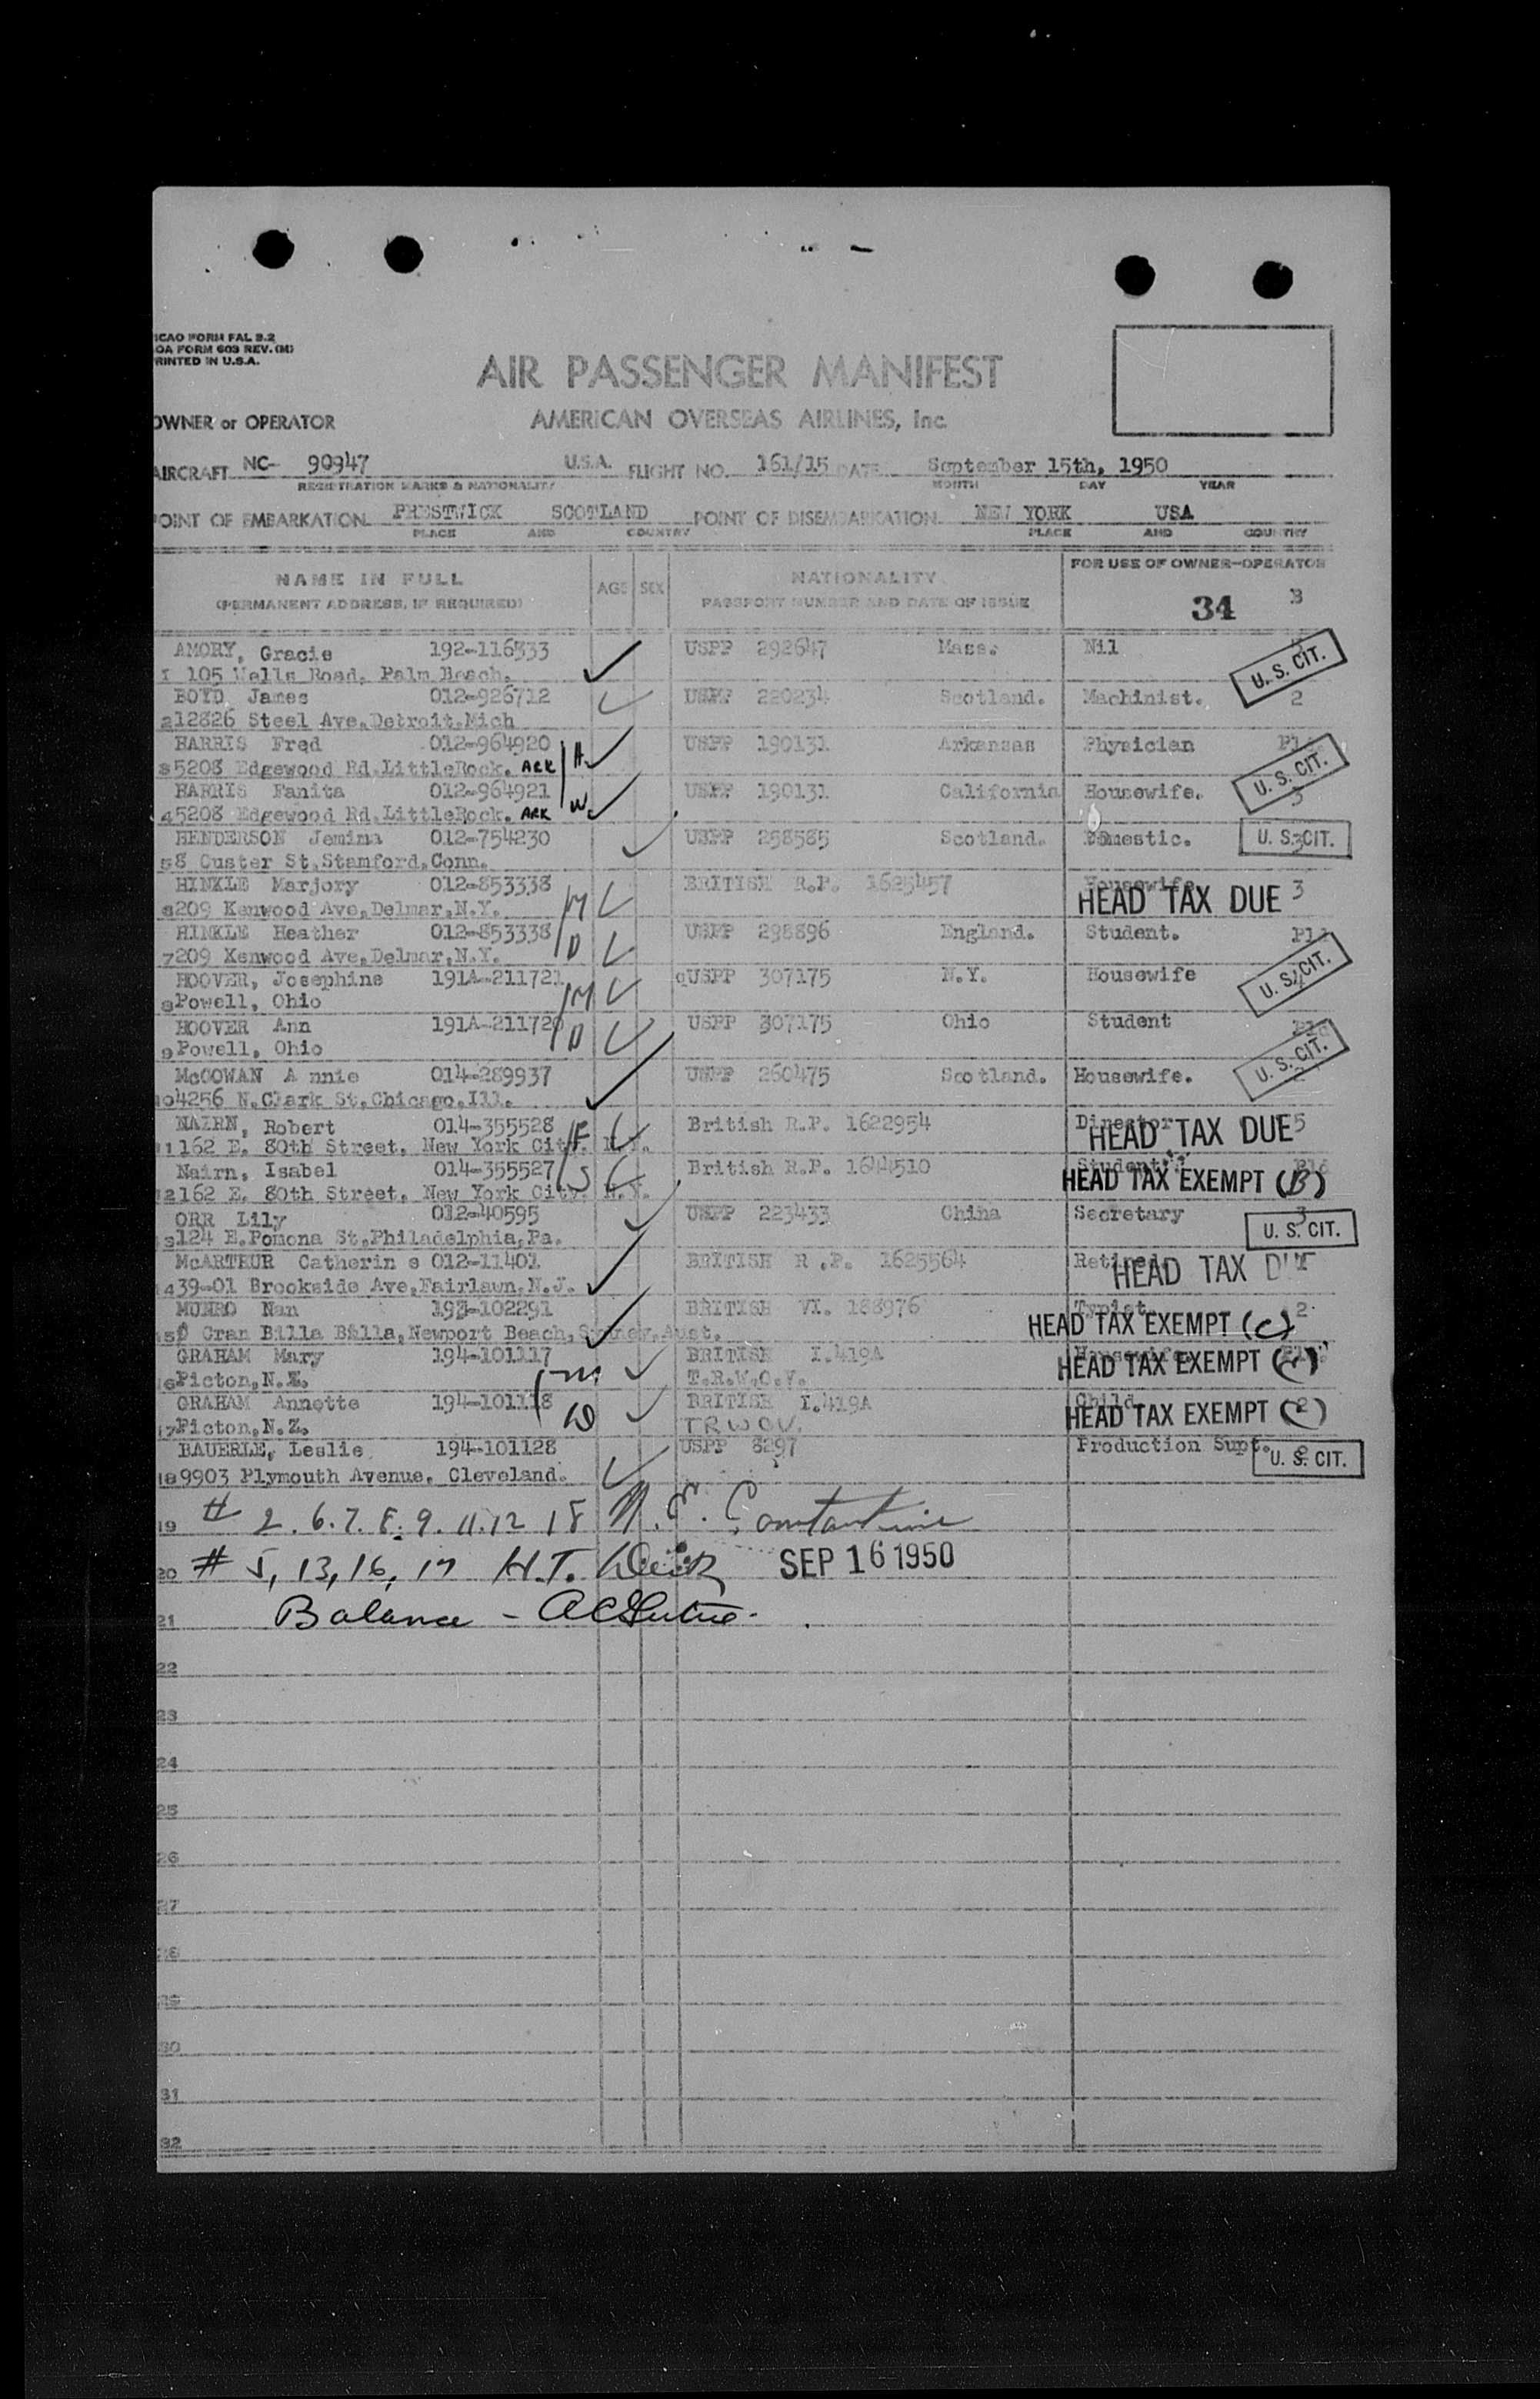 ICAO FORM FAL 9.2
OA FORM 603 REV. (M)
RINTED IN U.S.A.
AIR PASSENGER MANIFEST
OWNER or OPERATOR AMERICAN OVERSEAS AIRLINES, Inc.
AIRCRAFT NC- 90947 U.S.A. FLIGHT NO. 161/15 DATE September 15th, 1950
REGISTRATION MARKS & NATIONALITY MONTH DAY YEAR
POINT OF EMBARKATION PRESTWICK SCOTLAND POINT OF DISEMBARKATION NEW YORK USA
PLACE AND COUNTRY PLACE AND COUNTRY
NAME IN FULL AGE SEX NATIONALITY FOR USE OF OWNER-OPERATOR
(PERMANENT ADDRESS, IF REQUIRED) PASSPORT NUMBER AND DATE OF ISSUE 34 3
AMORY, Gracie 192-116333 USPP 292647 Mass. Nil U. S. CIT.
1 105 Wells Road, Palm Beach.
BOYD James 012-926712 USPP 220234 Scotland. Machinist. 2
2 12826 Steel Ave,Detroit,Mich
HARRIS Fred 012-964920 H USPP 190131 Arkansas Physician U. S. CIT.
3 5208 Edgewood Rd,LittleRock. ARK
HARRIS Fanita 012-964921 W USPP 190131 California Housewife. 3
4 5208 Edgewood Rd,LittleRock. ARK
HENDERSON Jemima 012-754230 USPP 258585 Scotland. Domestic. U. S. CIT.
5 8 Custer St,Stamford,Conn.
HINKLE Marjory 012-853338 M BRITISH R.P. 1625457 Housewife HEAD TAX DUE 3
6 209 Kenwood Ave,Delmar,N.Y.
HINKLE Heather 012-853338 D USPP 298896 England. Student.
7 209 Kenwood Ave,Delmar,N.Y.
HOOVER, Josephine 191A-211721 M USPP 307175 N.Y. Housewife U. S. CIT.
8 Powell, Ohio
HOOVER Ann 191A-211720 D USPP 307175 Ohio Student
9 Powell, Ohio
McGOWAN A nnie 014-289937 USPP 260475 Scotland. Housewife. U. S. CIT.
10 4256 N.Clark St,Chicago,Ill.
NAIRN, Robert 014-355528 F British R.P. 1622954 Director HEAD TAX DUE 5
11 162 E. 80th Street, New York City. N.Y.
Nairn, Isabel 014-355527 S British R.P. 1644510 Student HEAD TAX EXEMPT (B)
12 162 E. 80th Street, New York City. N.Y.
ORR Lily 012-40595 USPP 223433 China Secretary 3 U. S. CIT.
13 124 E.Pomona St,Philadelphia,Pa.
McARTHUR Catherin e 012-11401 BRITISH R .P. 1625564 Retired. HEAD TAX DUE
14 39-01 Brookside Ave,Fairlawn,N.J.
MUNRO Nan 193-102291 BRITISH VI. 188976 Typist. 2 HEAD TAX EXEMPT (C)
15 Cran Billa Billa,Newport Beach,Sydney,Aust.
GRAHAM Mary 194-101117 M BRITISH I.419A Housewife HEAD TAX EXEMPT (C)
16 Picton,N.Z. T.R.W.O.V.
GRAHAM Annette 194-101118 D BRITISH I.419A Child 2 HEAD TAX EXEMPT (C)
17 Picton,N.Z. TRWOV.
BAUERLE, Leslie 194-101128 USPP 8297 Production Supt. U. S. CIT.
18 9903 Plymouth Avenue, Cleveland.
19 # 2. 6. 7. 8. 9. 11. 12 18 Constantine
20 # 5, 13, 16, 17 H.T. SEP 16 1950
21 Balance -
22
23
24
25
26
27
28
29
30
31
32